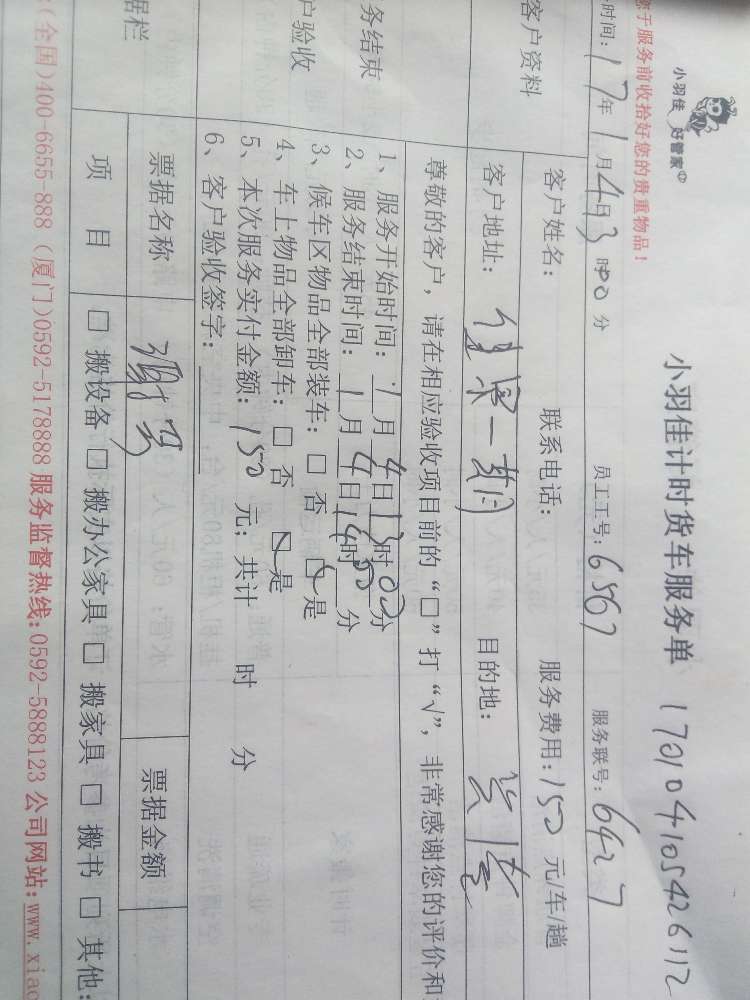 小羽佳 好管家
小羽佳计时货车服务单 170104105426112
于服务前收拾好您的贵重物品！
时间：17年1月4日13时00分 员工工号：6567 服务联号：6427
客户资料
客户姓名： 联系电话： 服务费用：150元/车/趟
客户地址： 一期 目的地：
尊敬的客户，请在相应验收项目前的“□”打“√”，非常感谢您的评价和
务结束
户验收
1、服务开始时间：1月4日13时00分
2、服务结束时间：1月4日14时50分
3、候车区物品全部装车：□ 否 ☑ 是
4、车上物品全部卸车：□ 否 ☑ 是
5、本次服务实付金额：150元；共计 时 分
6、客户验收签字：
据栏
票据名称 票据金额
项目 □ 搬设备 □ 搬办公家具 □ 搬家具 □ 搬书 □ 其他：
(全国)400-6655-888 (厦门)0592-5178888 服务监督热线：0592-5888123 公司网站：www.xiao